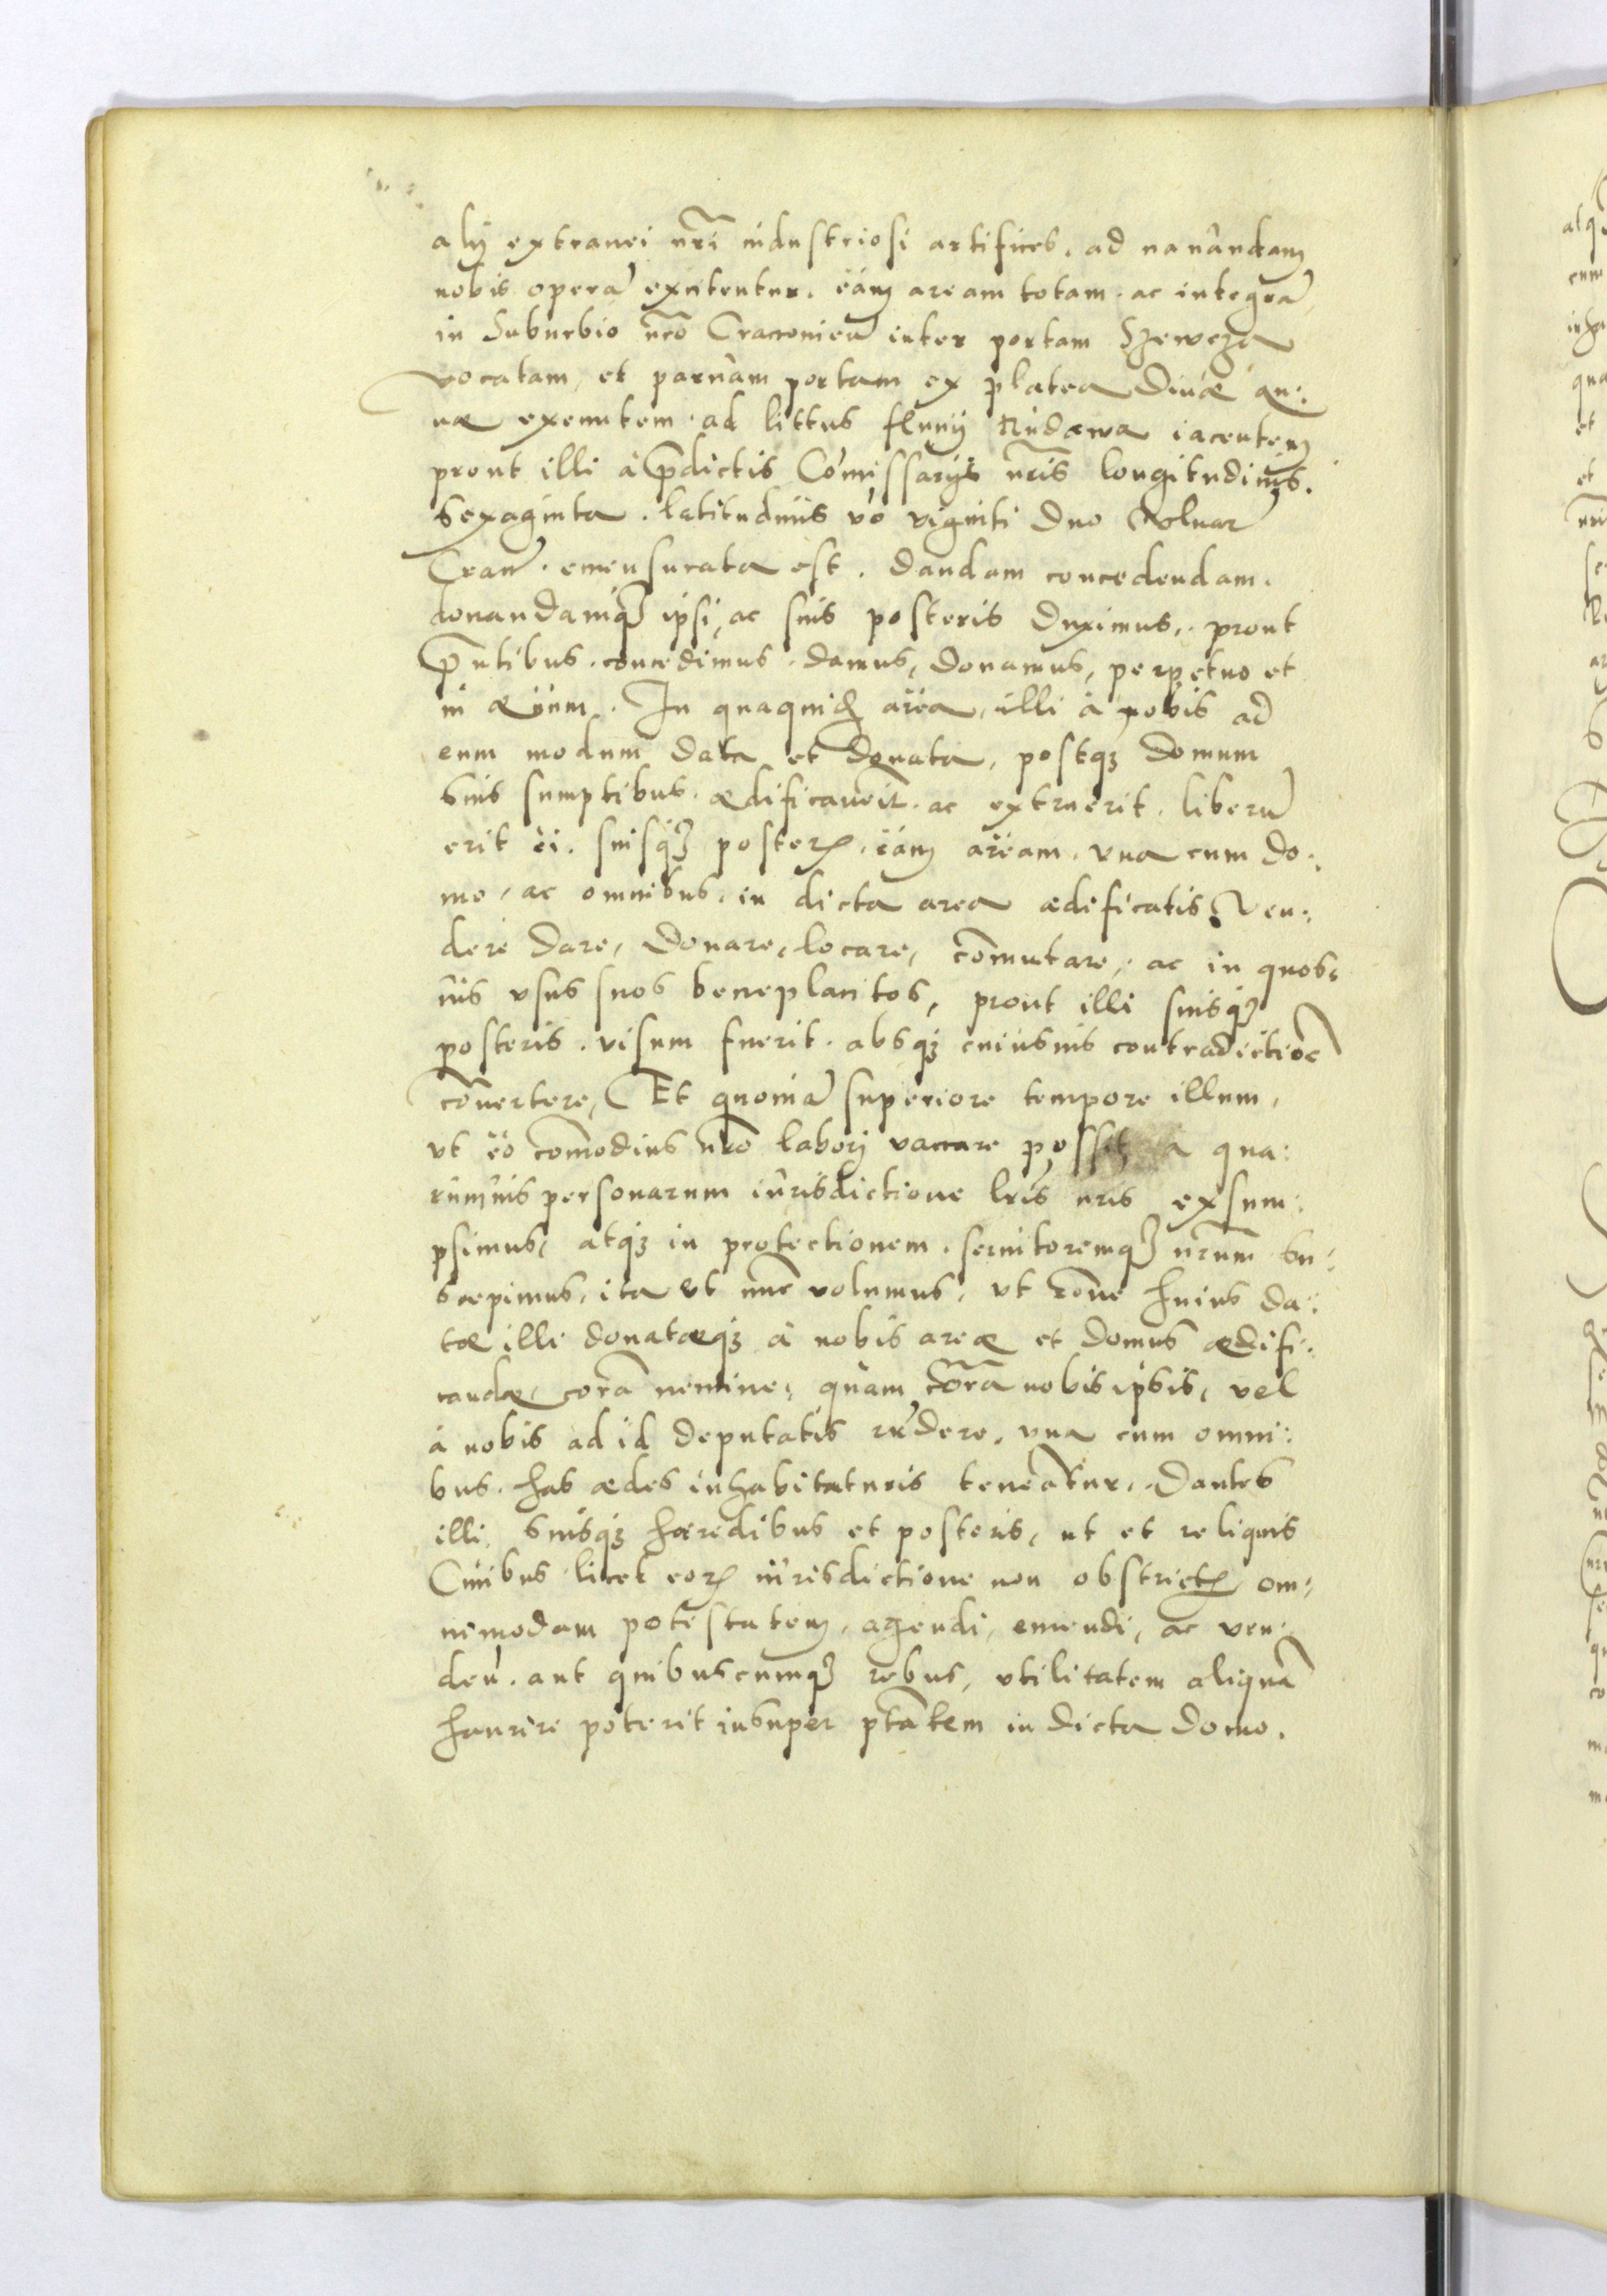 alij extranei nrĩ industriosi artifices. ad nauandam
nobis operã excitentur. eãm aream totam. ac integrã
in Suburbio nrõ Cracouieñ inter portam Szewcza
vocatam, et paruam portam ex platea Diuæ An:
næ exeuntem. ad littus fluuij Rudawa iacentem
prout illi à p̃dictis Cõmissarijs nrĩs longitudinis.
Sexaginta. latitudinis vò viginti duo vlnar̃
Craĩ. emensurata est. dandam concedendam.
donandamq̃ ipsi, ac suis posteris duximus,. prout
p̃ntibus. concedimus. damus, donamus, perpetuo et
in æuum. In quaquid̃ area, illi à nobis ad
eum modum data et donata, postq̃ domum
suis sumptibus. ædificauerit. ac extruerit. liberũ
erit ei. suisq̃ posterꝭ. eãm aream. vna cum do:
mo, ac omnibus. in dicta area ædificatis Ven:
dere dare, donare, locare, cõmutare,. ac in quos:
uis vsus suos beneplacitos, prout illi suisq̃
posteris. visum fuerit. absq̃ cuiusuis contradictioẽ
cõuertere, Et quoniã superiore tempore illum,
vt eò cõmodius nrõ labori vaccare posset a qua:
rumuis personarum iurisdictione lrĩs nris exsum:
psimus, atq̃ in protectionem. seruitoremq̃ nrũm su:
scepimus, ita et nũc volumus, vt rõne huius da:
tæ illi donatæq̃ à nobis areæ et domus ædifi:
candæ, corã nemine, quam corã nobis ipsis, vel
à nobis ad id deputatis rñdere. vna cum omni:
bus. has ædes inhabitaturis teneatur,. Dantes
illi, suisq̃ hæredibus et posteris, ut et reliquis
Ciuibus licet eorꝭ iurisdictione non obstrictꝭ om:
nimodam potestatem. agendi, emendi, ac ven:
deñ. aut quibuscumq̃ rebus, vtilitatem aliquã
haurire poterit insuper ptãtem in dicta domo.